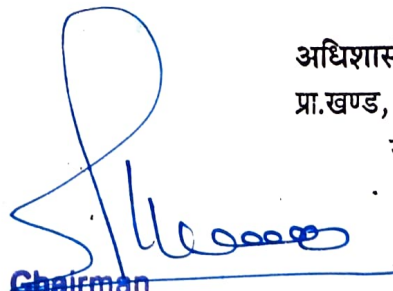 अधिशास
प्रा.खण्ड,
Chairman